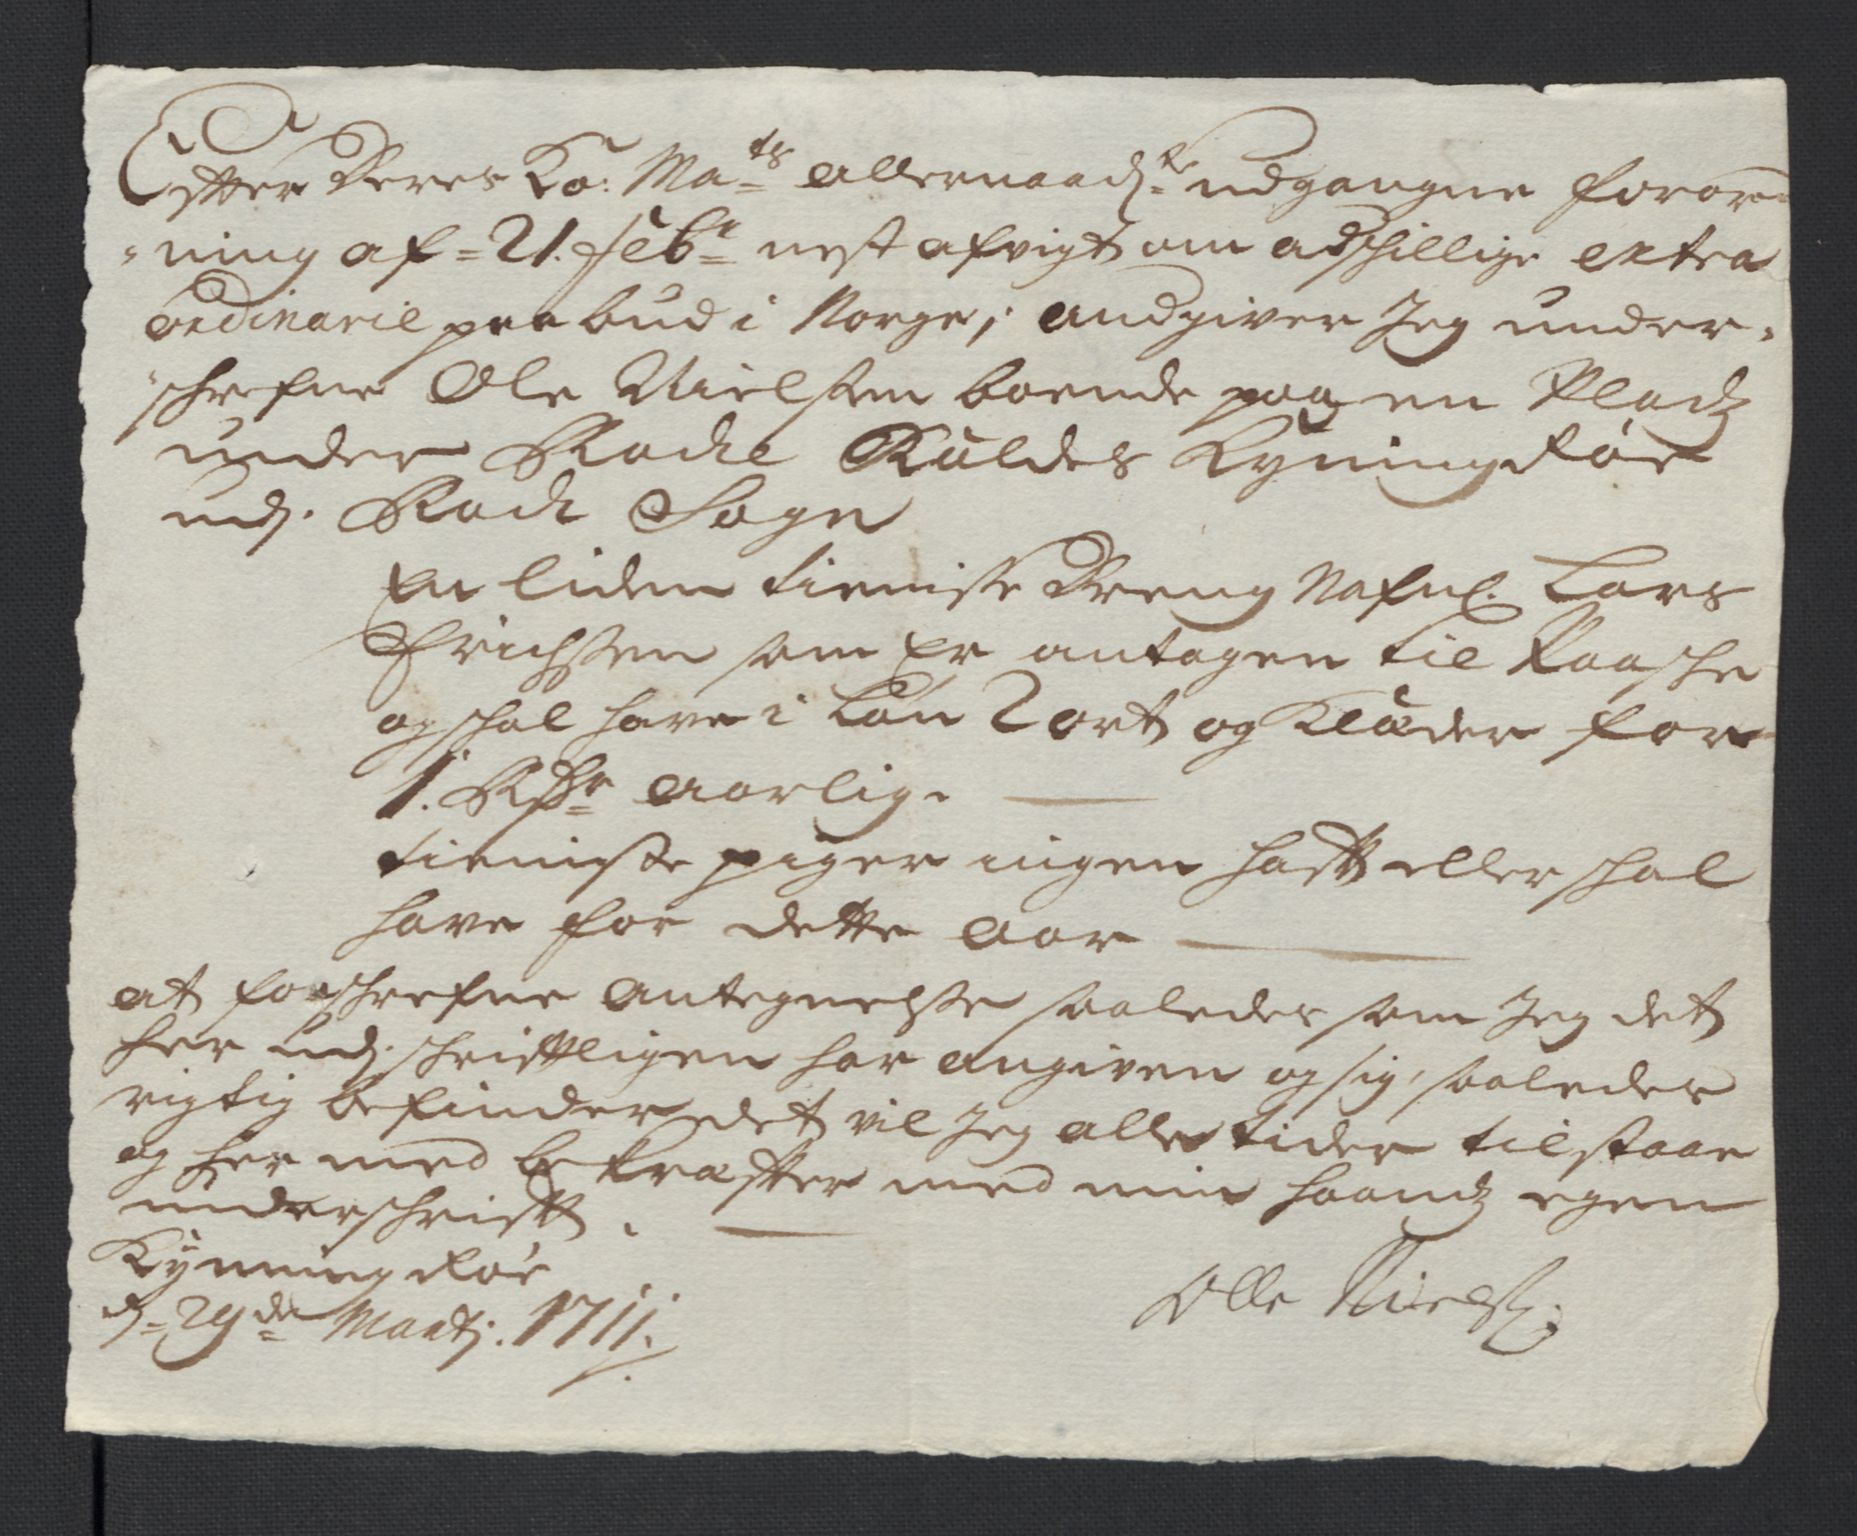 Efter Deres Ko: Maˢᵗˢ allernaadˢᵗᵉ udgangne foror„
„ning af = 21. Febʳ nest afvigt om adschillige extra
ordinarie paabud i Norge; andgiver Jeg under„
„schrefne Ole Nielsen boende paa en Pladz
under Rode Kaldes Kyningdför
udj. Rode Sogn
En liden tieniste Dreng Nafnl. Lars
Erichssen som Er antagen til Paasche
og schal have i Løn 2 ort og Klæder for
1. Rdr aarlig.
tieniste piger ingen haft eller schal
have for dette Aar
at forschrefne antegnelsse saaledes som Jeg det
her udj. schriftligen har angiven og sig, saaledes
rigtig befinder det vil Jeg alle tider tilstaae
og her med bekrefter med min haandz egen
underschrift.
d = 29de Martj. 1711.
Olle Nielss: